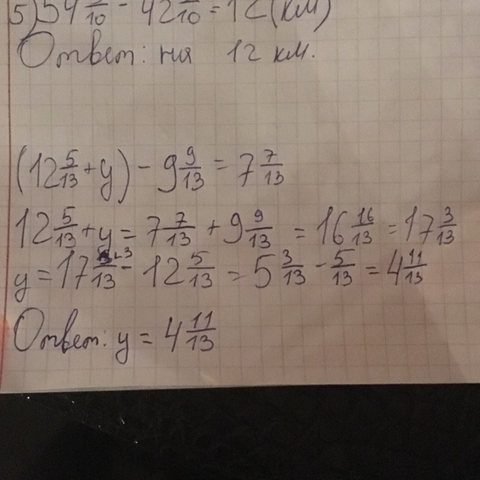 5) 54 /10 - 42 /10 = 12 (км)
Ответ: на 12 км.
(12 5/13 + y) - 9 9/13 = 7 7/13
12 5/13 + y = 7 7/13 + 9 9/13 = 16 16/13 = 17 3/13
y = 17 3/13 - 12 5/13 = 5 3/13 - 5/13 = 4 11/13
Ответ: y = 4 11/13